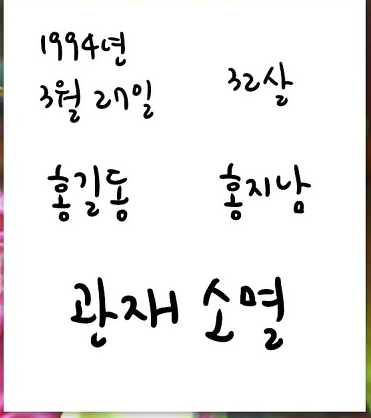 1994년
3월 27일 32살
홍길동 홍지남
관재 소멸